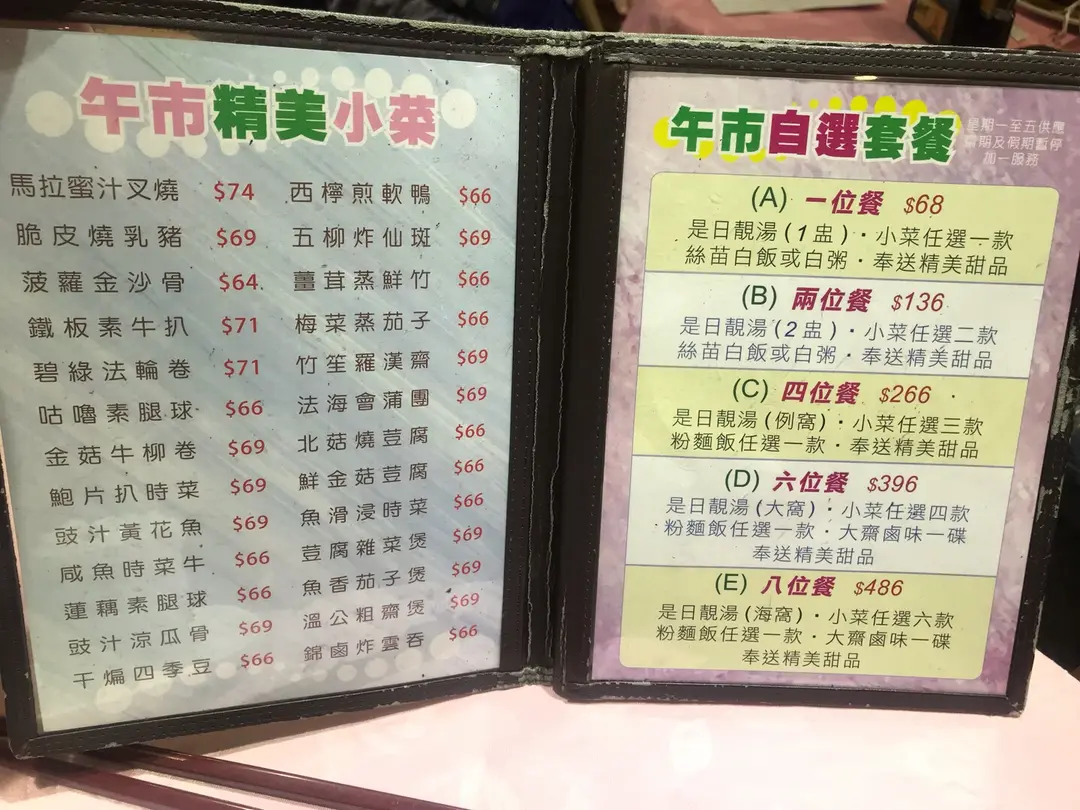 午市精美小菜
馬拉蜜汁叉燒 $74
脆皮燒乳豬 $69
菠蘿金沙骨 $64
鐵板素牛扒 $71
碧綠法輪卷 $71
咕嚕素腿球 $66
金菇牛柳卷 $69
鮑片扒時菜 $69
豉汁黃花魚 $69
咸魚時菜牛 $66
蓮藕素腿球 $66
豉汁涼瓜骨 $69
干煸四季豆 $66
西檸煎軟鴨 $66
五柳炸仙斑 $69
薑茸蒸鮮竹 $66
梅菜蒸茄子 $66
竹笙羅漢齋 $69
法海會蒲團 $69
北菇燒荳腐 $66
鮮金菇荳腐 $66
魚滑浸時菜 $66
荳腐雜菜煲 $69
魚香茄子煲 $69
溫公粗齋煲 $69
錦鹵炸雲吞 $66
午市自選套餐
星期一至五供應
假期及假期暫停
加一服務
(A) 一位餐 $68
是日靚湯(1盅)·小菜任選一款
絲苗白飯或白粥·奉送精美甜品
(B) 兩位餐 $136
是日靚湯(2盅)·小菜任選二款
絲苗白飯或白粥·奉送精美甜品
(C) 四位餐 $266
是日靚湯(例窩)·小菜任選三款
粉麵飯任選一款·奉送精美甜品
(D) 六位餐 $396
是日靚湯(大窩)·小菜任選四款
粉麵飯任選一款·大齋鹵味一碟
奉送精美甜品
(E) 八位餐 $486
是日靚湯(海窩)·小菜任選六款
粉麵飯任選一款·大齋鹵味一碟
奉送精美甜品